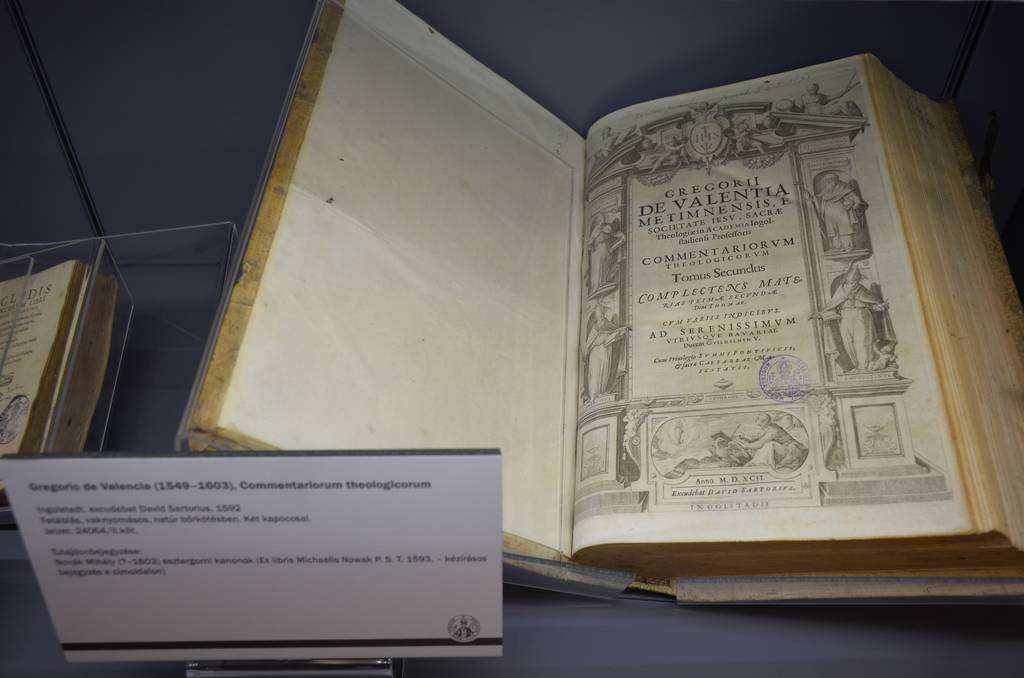 CLIDIS
IHS
GREGORII
DE VALENTIA
METIMNENSIS, E
SOCIETATE IESV, SACRÆ
Theologiæ in ACADEMIA Ingol-
stadiensi Professoris
COMMENTARIORVM
THEOLOGICORVM
Tomus Secundus
COMPLECTENS MATE-
RIAS PRIMÆ SECVNDÆ
Diui THOMAE.
CVM VARIIS INDICIBVS.
AD SERENISSIMVM
VTRIVSQVE BAVARIAE
Ducem GVILHELMVM V.
Cum Priuilegio SVMMI PONTIFICIS,
& sacræ CAESAREAE MA-
IESTATIS,
Anno M. D. XCII.
Excudebat DAVID SARTORIVS,
INGOLSTADII
Gregorio de Valencia (1549–1603), Commentariorum theologicorum
Ingolstadt, excudebat David Sartorius, 1592
Fatáblás, vaknyomásos, natúr bőrkötésben. Két kapoccsal.
Jelzet: 24064/II.köt.
Tulajdonbejegyzése:
Novák Mihály (?–1603) esztergomi kanonok (Ex libris Michaelis Nowak P. S. T. 1593. – kézírásos
bejegyzés a címoldalon)